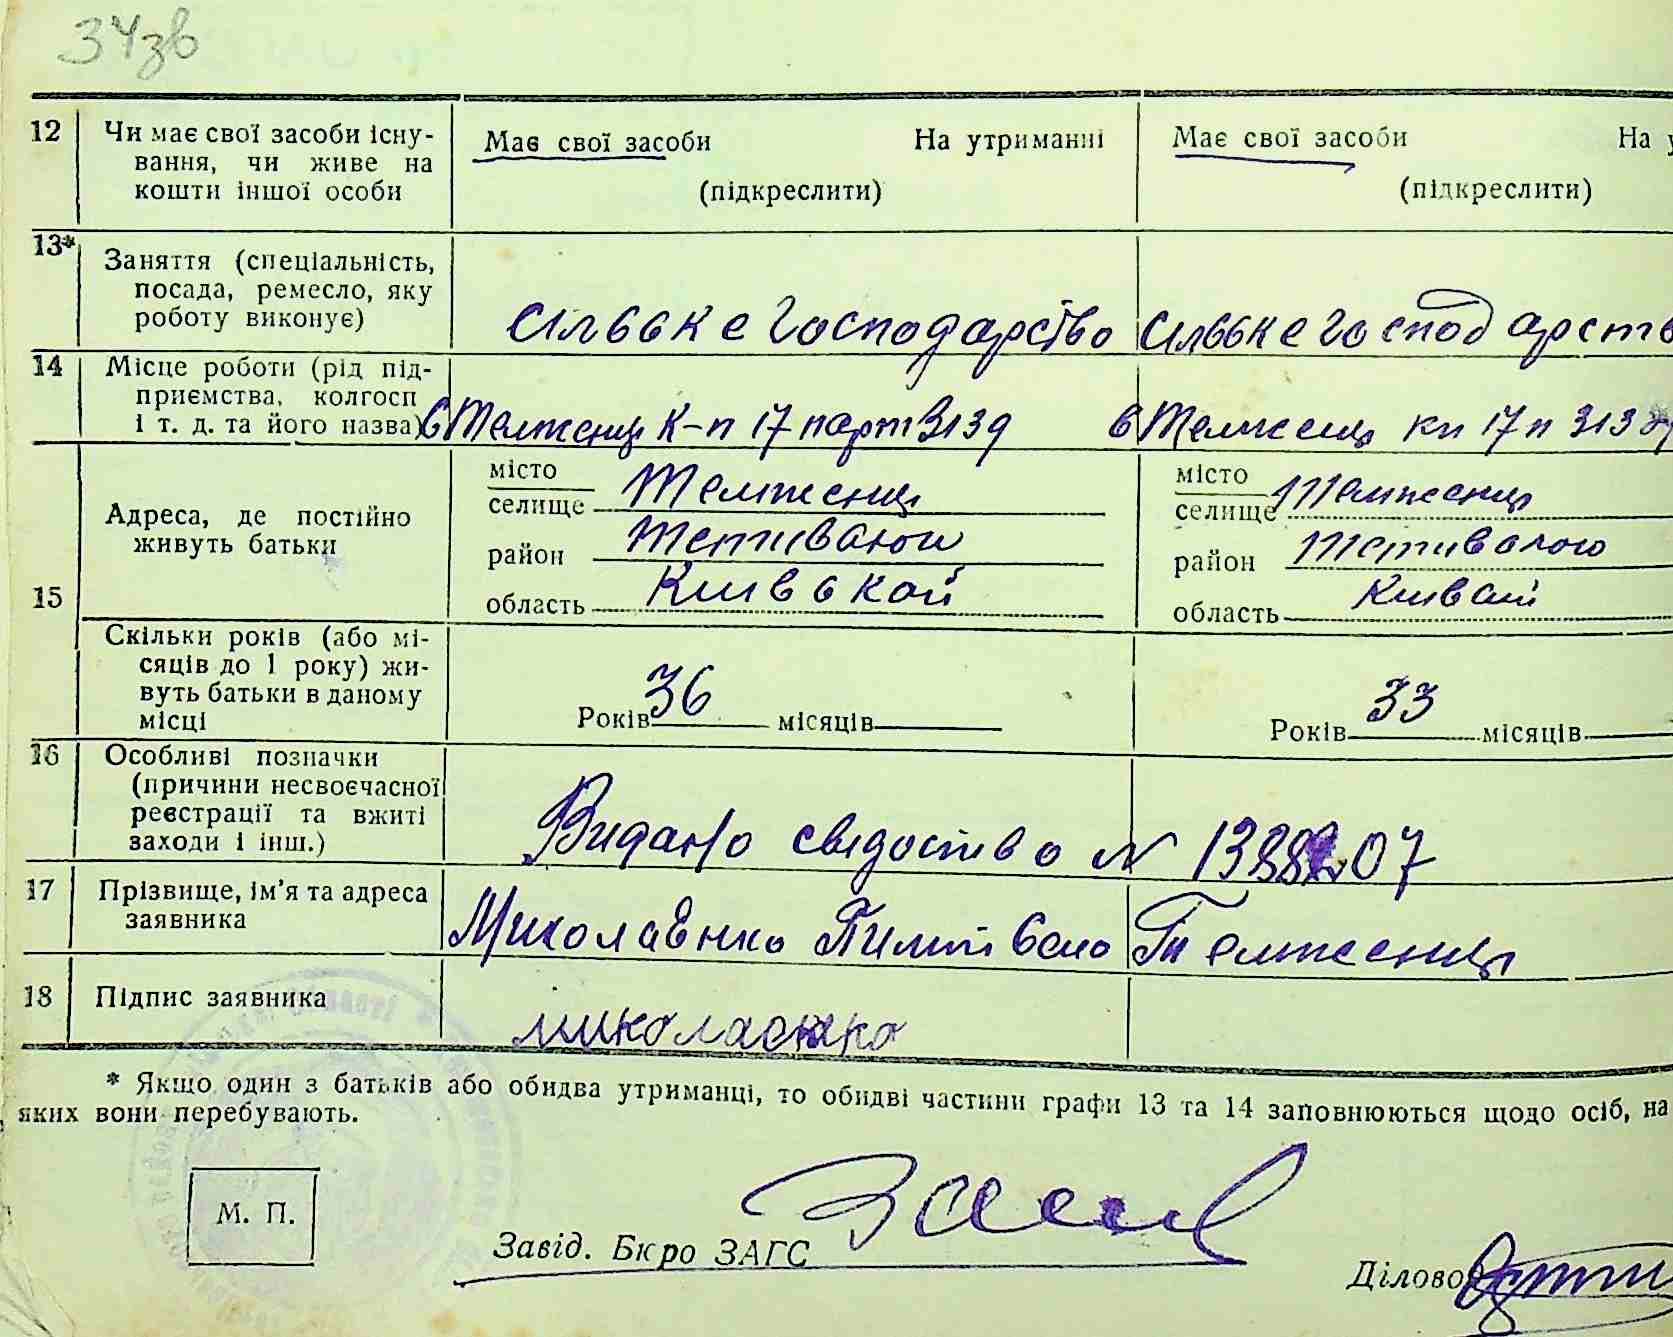 34зв
12 Чи має свої засоби існу- Має свої засоби На утриманні Має свої засоби На у
вання, чи живе на
кошти іншої особи (підкреслити) (підкреслити)
13* Заняття (спеціальність,
посада, ремесло, яку
роботу виконує) Сільське господарство Сільське господарств
14 Місце роботи (рід під-
приємства, колгосп
і т. д. та його назва) с Телженці К-п 17 парт з'їзд с Телженц кп 17 п з'їзд
місто місто
селище Телженці селище Телженці
Адреса, де постійно
живуть батьки
район район
15 область Київской область
Скільки років (або мі-
сяців до 1 року) жи-
вуть батьки в даному
місці Років 36 місяців Років 33 місяців
16 Особливі позначки
(причини несвоєчасної
реєстрації та вжиті
заходи і інш.) Видано свідоство №
17 Прізвище, ім'я та адреса
заявника Миколаєнко село Телженці
18 Підпис заявника Миколаєнко
* Якщо один з батьків або обидва утриманці, то обидві частини графи 13 та 14 заповнюються щодо осіб, на
яких вони перебувають.
М. П.
Завід. Бюро ЗАГС
Діловод